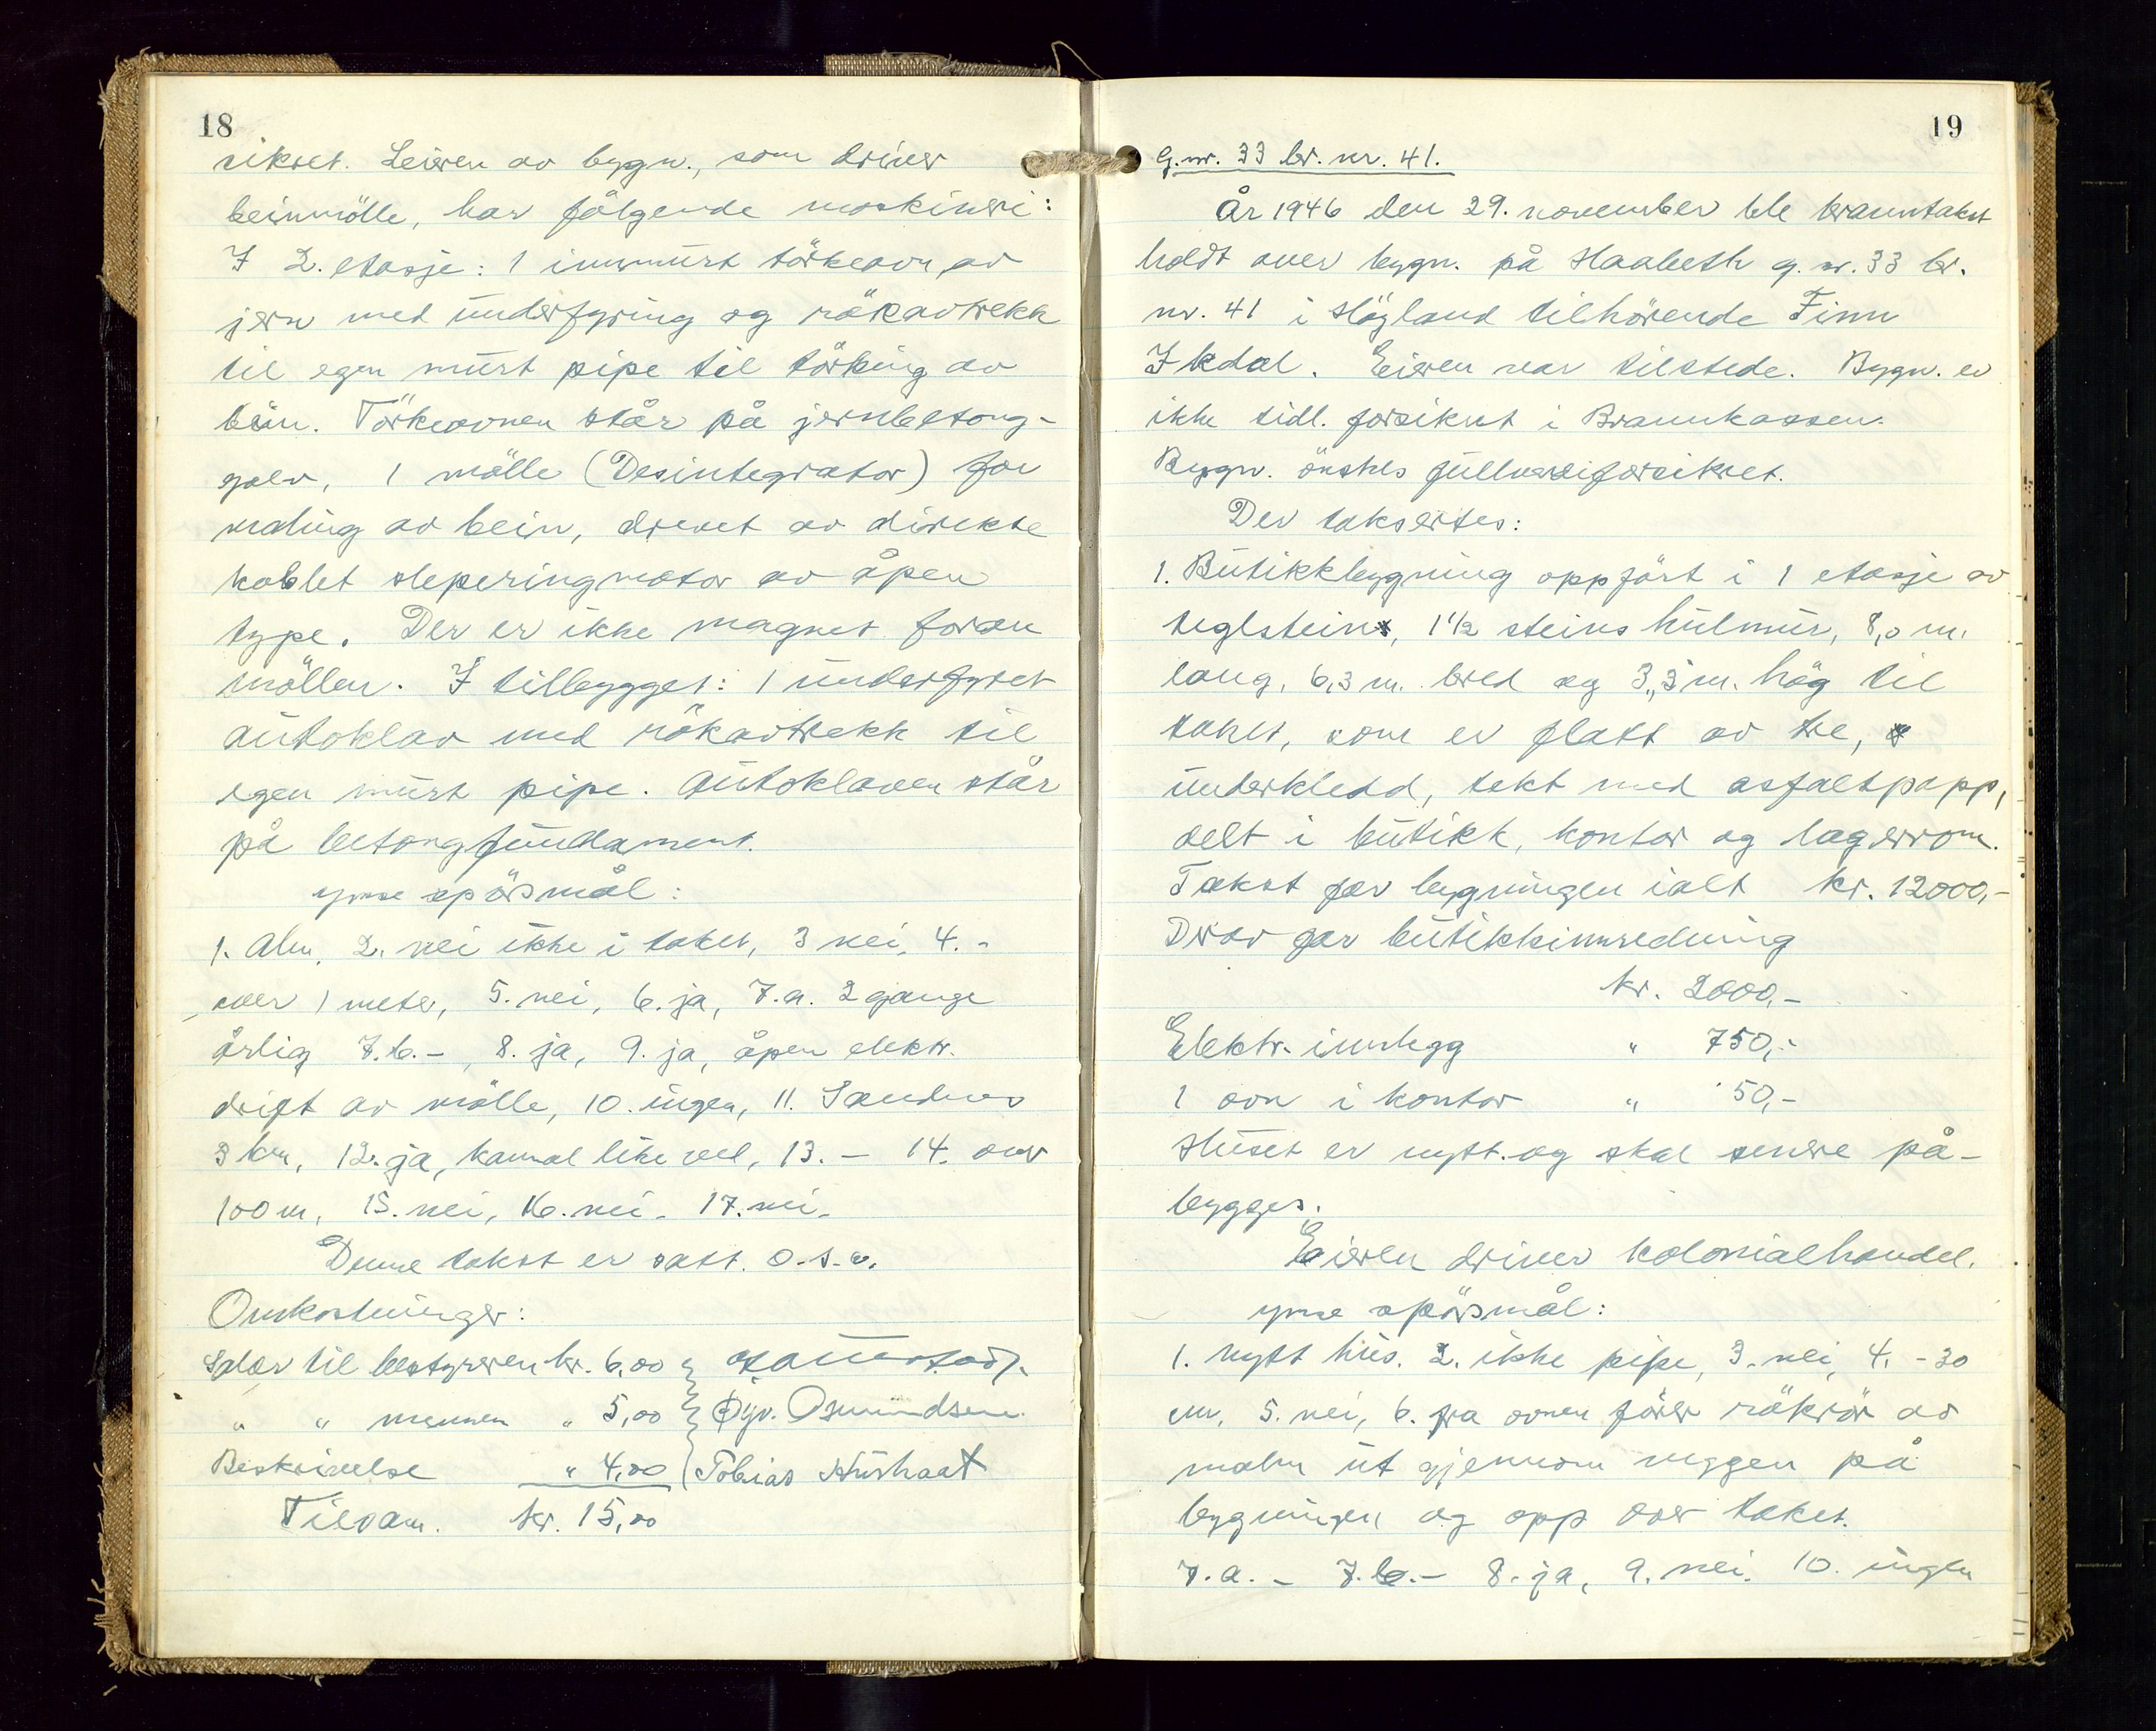 18
sikret. Leieren av bygn., som driver
beinmölle, har fölgende maskineri:
I 2. etasje: 1 innmurt törkeovn av
jern med underfyring og rökavtrekk
til egen murt pipe til törking av
bein. Törkeovnen står på jernbetong-
golv, 1 mölle (Desintegrator) for
maling av bein, drevet av direkte
koblet sleperingmotor av åpen
type. Der er ikke magnet foran
möllen. I tilbygget: 1 underfyret
autoklav med rökavtrekk til
egen murt pipe. Autoklaven står
på betongfundament.
ymse spörsmål:
1. Alm. 2. nei ikke i taket, 3 nei, 4. -
over 1 meter, 5. nei, 6. ja, 7.a. 2 gange
årlig 7.b. -, 8. ja, 9. ja, åpen elektr.
drift av mölle, 10. ingen, 11. Sandnes
3 km, 12. ja, kanal like ved, 13. - 14. over
100 m, 15. nei, 16. nei. 17. nei.
Denne takst er satt. o.s.v.
Omkostninger:
Salær til bestyreren kr. 6,00
" " mennen " 5,00 Øyv. Osmundsen
Beskrivelse " 4,00 Tobias Hushaat
Tilsam. kr. 15,00
19
G.nr. 33 br. nr. 41.
År 1946 den 29. november ble branntakst
holdt over bygn. på Haabeth g. nr. 33 br.
nr. 41 i Högland tilhörende Finn
Ikdal. Eieren var tilstede. Bygn. er
ikke tidl. forsikret i Brannkassen.
Bygn. önskes fullverdiforsikret.
Der taksertes:
1. Butikkbygning oppfört i 1 etasje av
teglstein, 1 1/2 steins hulmur, 8,0 m.
lang, 6,3 m. bred og 3,3 m. hög til
taket, som er flatt av tre,
underkledd, tekt med asfaltpapp,
delt i butikk, kontor og lagerrom.
Takst for bygningen ialt kr. 12000,-
Derav for butikkinnredning
kr. 2000,-
Elektr. innlegg " 750,-
1 ovn i kontor " 50,-
Huset er nytt og skal senere på-
bygges.
Eieren driver kolonialhandel.
ymse spörsmål:
1. Nytt hus. 2. ikke pipe, 3. nei, 4. - 30
cm, 5. nei, 6. fra ovnen förer rökrör av
malm ut gjennom veggen på
bygningen og opp over taket.
7.a. - 7.b. - 8. ja, 9. nei. 10. ingen